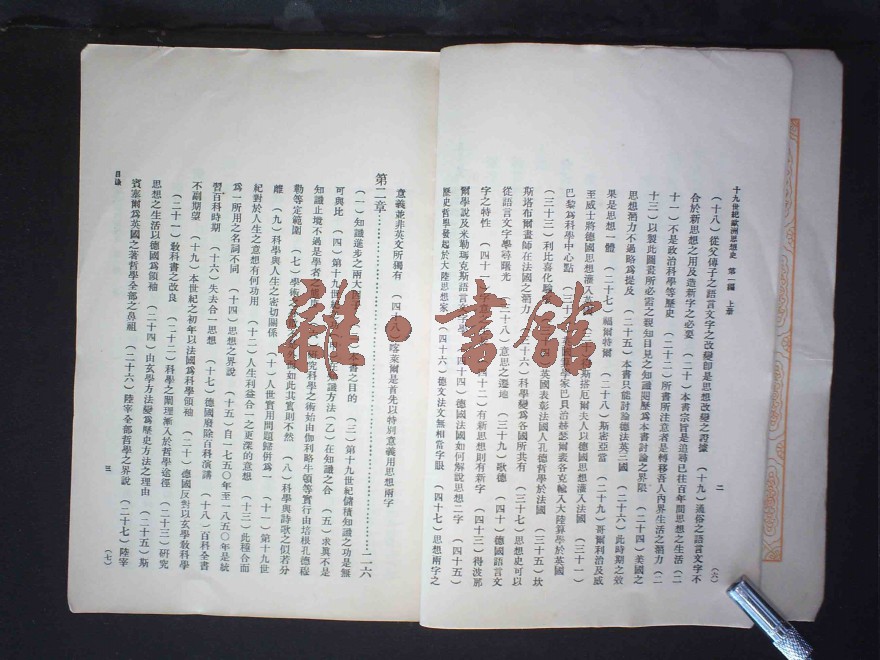 十九世紀歐洲思想史 第一編 上冊
二
(六)
(十八)從父傳子之語言文字之改變卽是思想改變之證據 (十九)通俗之語言文字不
合於新思想之用及造新字之必要 (二十)本書宗旨是追尋已往百年間思想之生活(二
十一)不是政治科學等歷史 (二十二)所書所注意者是轉移吾人內界生活之潛力(二
十三)以製此圖畫所必需之親知目見之知識閱歷爲本書討論之界限 (二十四)美國之
思想潛力不過略爲提及 (二十五)本書只能討論德法英三國 (二十六)此時期之效
果是思想一體 (二十七)福爾特爾 (二十八)斯密亞當 (二十九)哥爾利治及威
至威士將德國思想灌入英 斯搭厄爾夫人以德國思想灌入法國 (三十一)
巴黎爲科學中心點 學家巴貝治赫瑟爾裴各克輸入大陸算學於英國
(三十三)利比喜化驗 英國表彰法國人孔德哲學於法國 (三十五)坎
斯塔布爾畫師在法國之潛力 (三十六)科學變爲各國所共有 (三十七)思想史可以
從語言文字學尋曙光 (三十八)意思之遷地 (三十九)歌德 (四十)德國語言文
字之特性 (四十一)字意 (四十二)有新思想則有新字 (四十三)得波那
爾學說及米勒瑪克斯語言文字學 (四十四)德國法國如何解說思想二字 (四十五)
歷史哲學發起於大陸思想家 (四十六)德文法文無相當字眼 (四十七)思想兩字之
意義並非英文所獨有 (四十八)喀萊爾是首先以特別意義用思想兩字
第二章……………………一一六
(一)知識進步之兩大因 本書之目的 (三)第十九世紀儲積知識之功是無
可與比 (四)第十九世 在知識方法(乙)在知識之合 (五)求異不是
知識止境不過是學者之 研究科學之術始由伽利略牛頓等實行由培根孔德程
勒等定範圍 (七)學術之 外面如此其實則不然 (八)科學與詩歌之似若分
離 (九)科學與人生之密切關係 (十)人世實用問題歸併爲一 (十一)第十九世
紀對於人生之意想有何功用 (十二)人生利益合一之更深的意想 (十三)此種合而
爲一所用之名詞不同 (十四)思想之界說 (十五)自一七五〇年至一八五〇年是統
習百科時期 (十六)失去合一思想 (十七)德國廢除百科演講 (十八)百科全書
不副期望 (十九)本世紀之初年以法國爲科學領袖 (二十)德國反對以玄學敎科學
(二十一)敎科書之改良 (二十二)科學之闡理漸入於哲學途徑 (二十三)硏究
思想之生活以德國爲領袖 (二十四)由玄學方法變爲歷史方法之理由 (二十五)斯
賓塞爾爲英國之著哲學全部之鼻祖 (二十六)陸宰全部哲學之界說 (二十七)陸宰
目錄
三
(七)
雜·書館